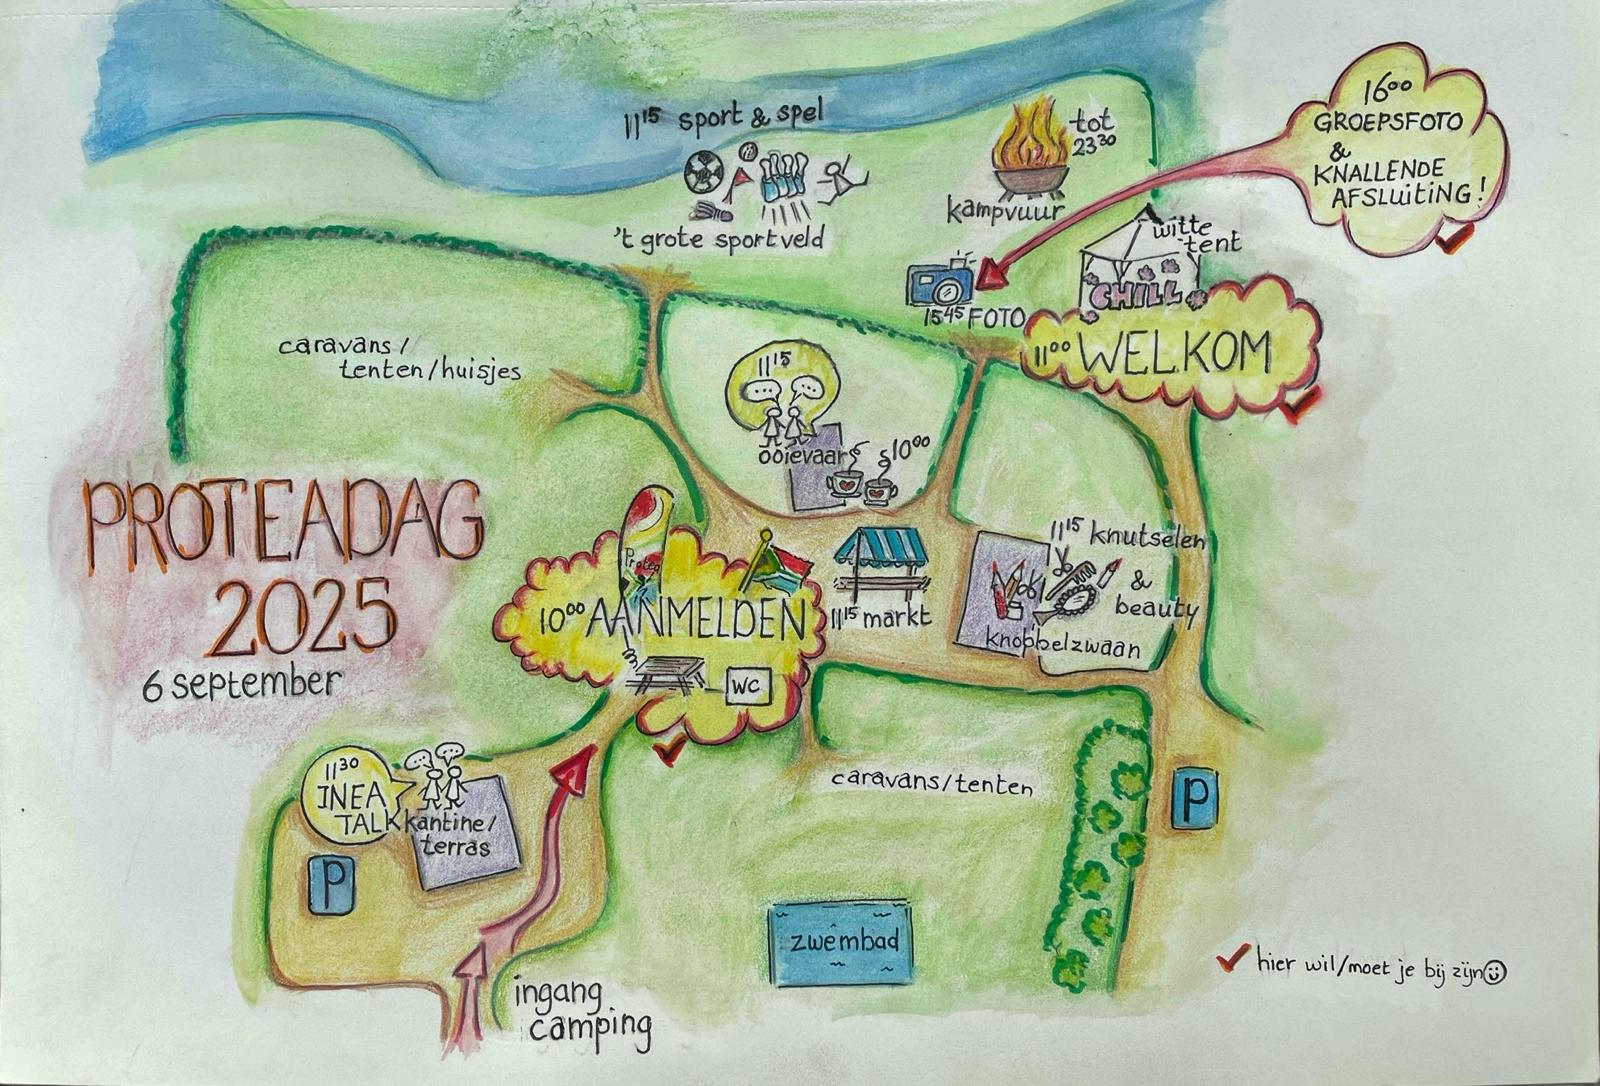 11¹⁵ sport & spel
't grote sportveld
tot
23³⁰
kampvuur
16⁰⁰
GROEPSFOTO
&
KNALLENDE
AFSLUITING!
witte
tent
CHILL
15⁴⁵ FOTO
11⁰⁰ WELKOM
caravans/
tenten/huisjes
11¹⁵
...
...
ooievaar
10⁰⁰
PROTEADAG
2025
6 september
Protea
10⁰⁰ AANMELDEN
WC
11¹⁵ markt
11¹⁵ knutselen
&
beauty
knobbelzwaan
11³⁰
INEA
TALK
kantine/
terras
P
caravans/tenten
P
zwembad
ingang
camping
hier wil/moet je bij zijn